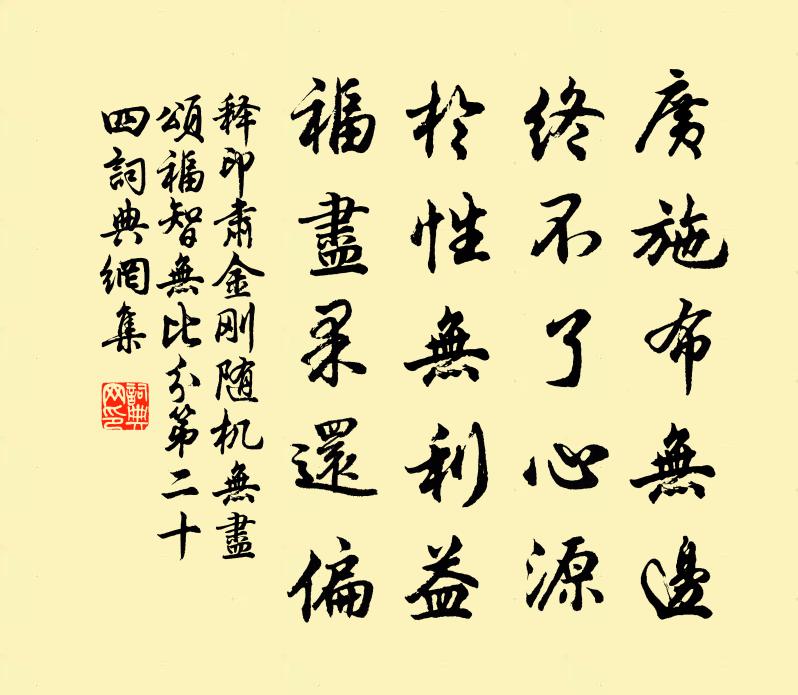 廣施布無邊
終不了心源
於性無利益
福盡果還偏
释印肅金刚随机無盡
頌福智無比分第二十
四詞典網集
詞典
网印